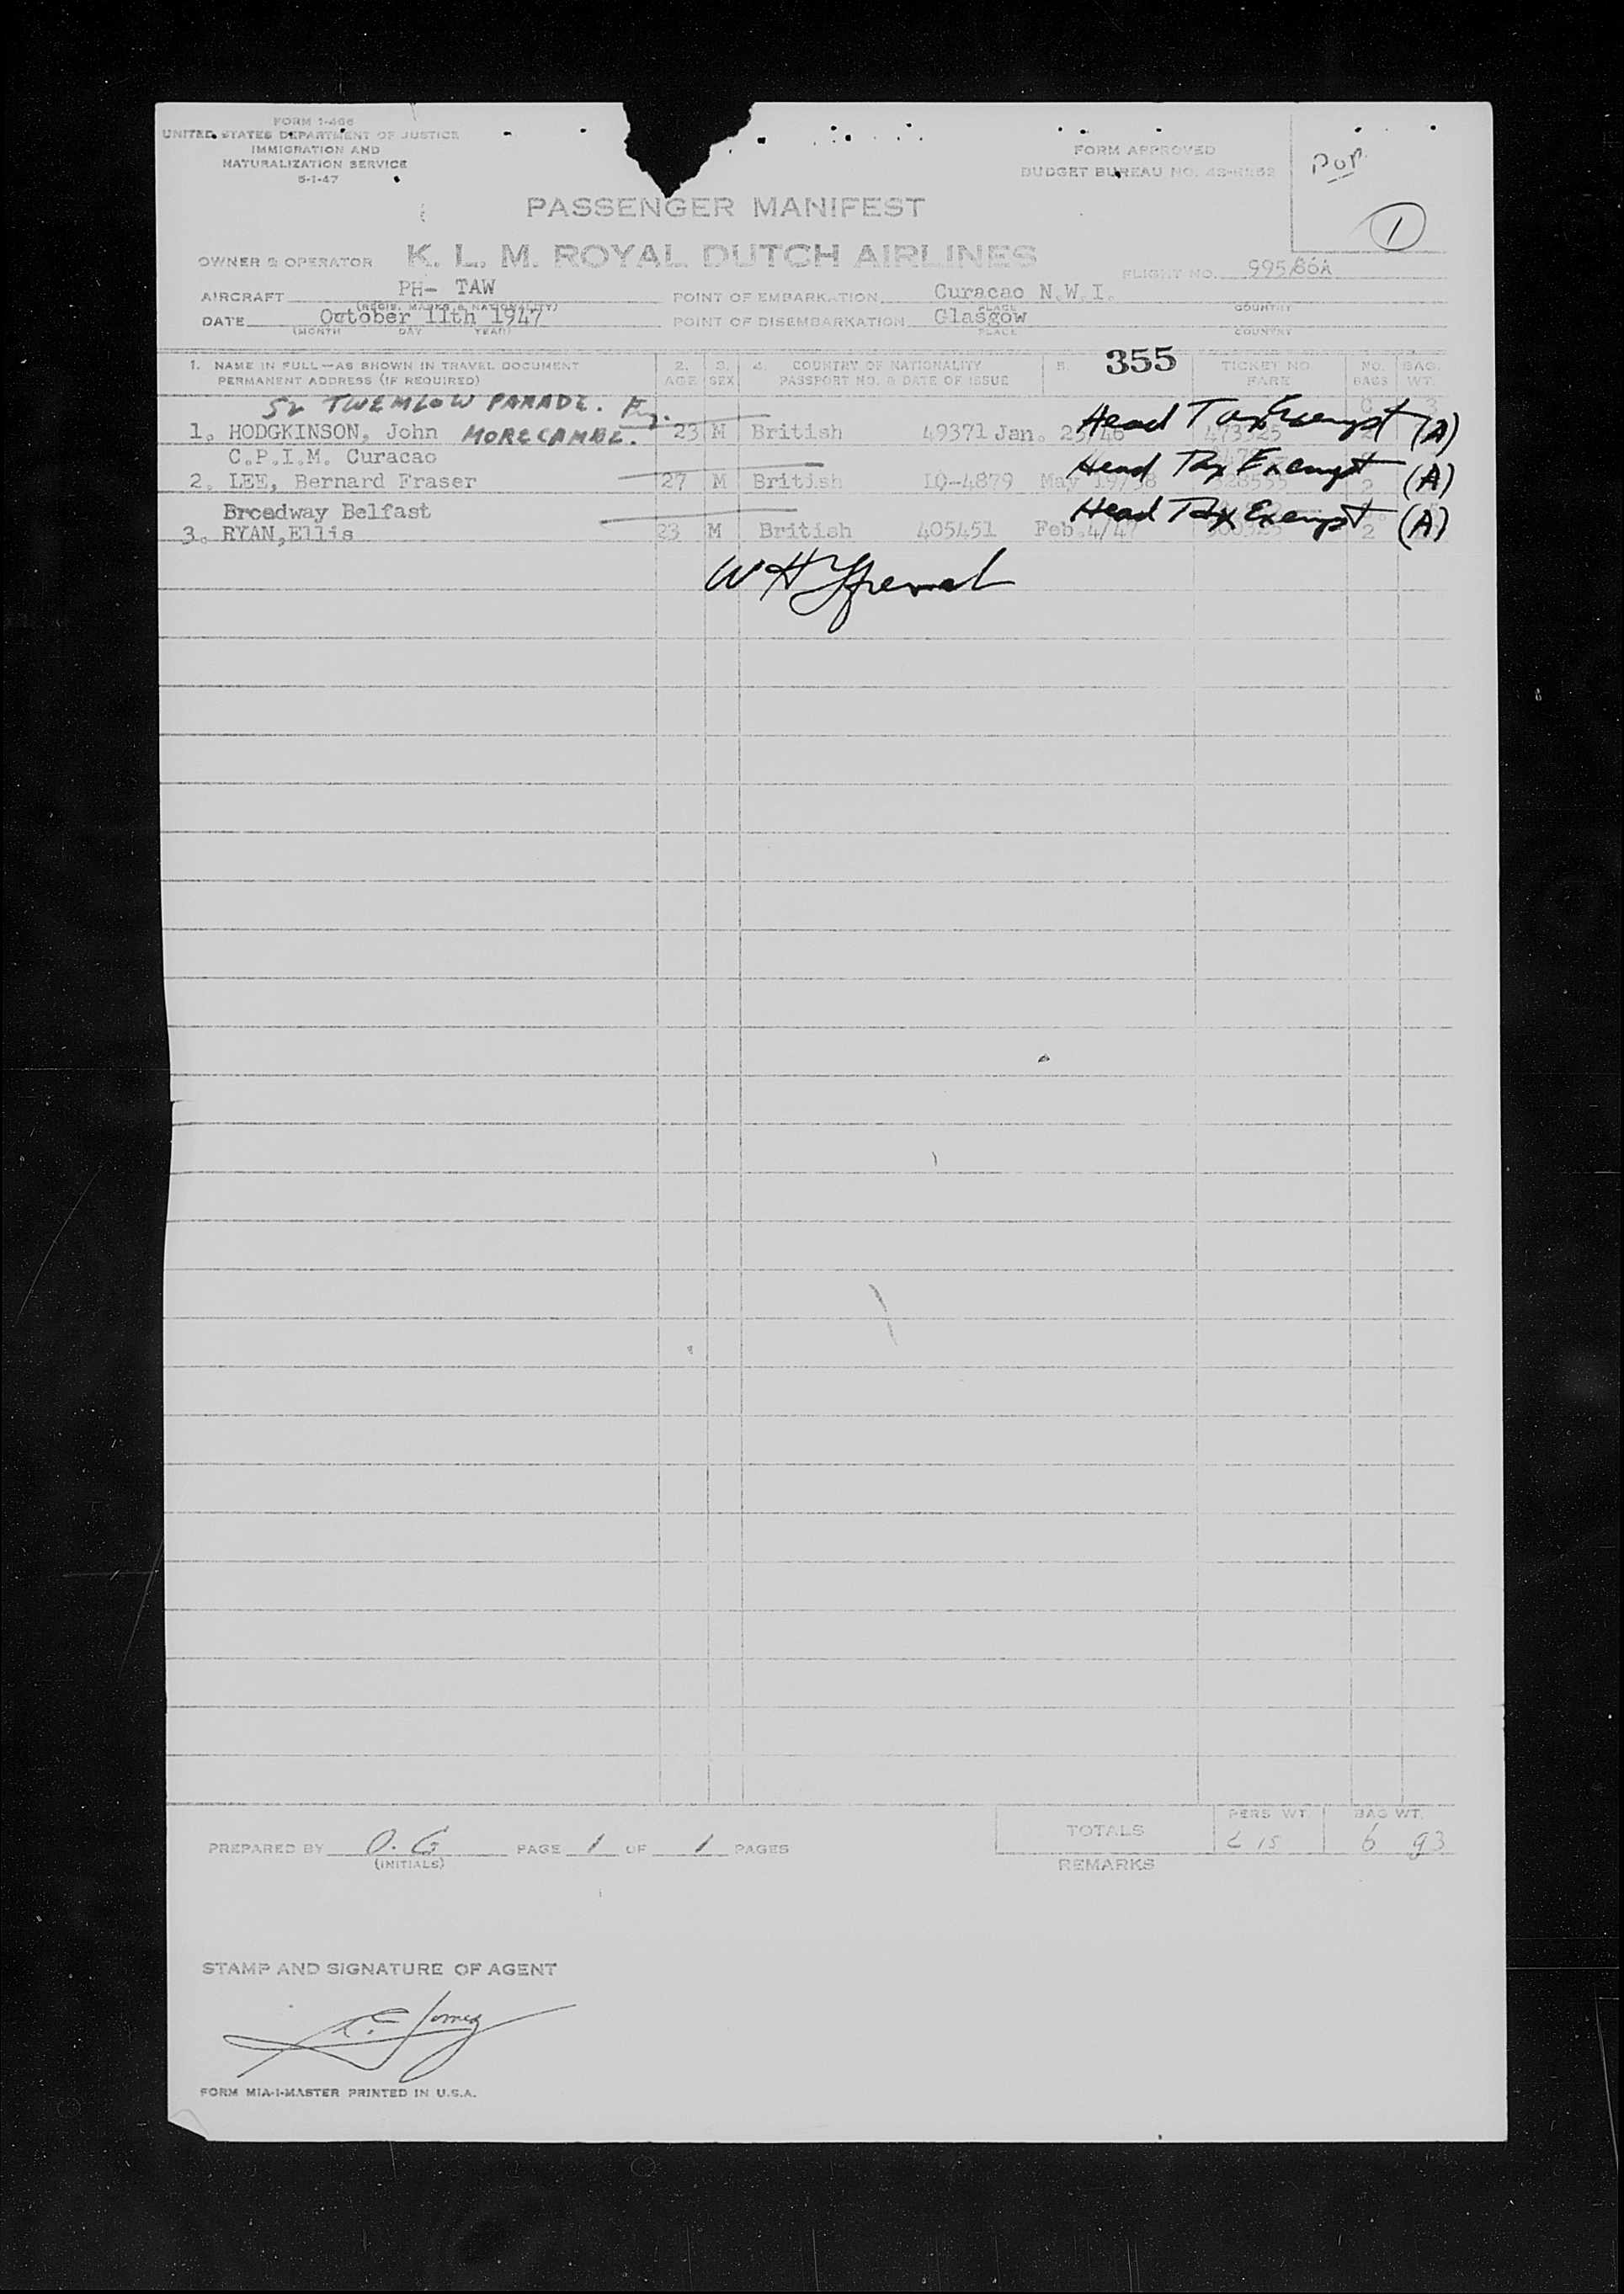 FORM I-466
UNITED STATES DEPARTMENT OF JUSTICE
IMMIGRATION AND
NATURALIZATION SERVICE
5-1-47
FORM APPROVED
BUDGET BUREAU NO.
1
PASSENGER MANIFEST
OWNER & OPERATOR K. L. M. ROYAL DUTCH AIRLINES
FLIGHT NO. 995/86A
AIRCRAFT PH- TAW POINT OF EMBARKATION Curacao N.W.I.
(REGIS. MARKS & NATIONALITY) PLACE COUNTRY
DATE October 11th 1947 POINT OF DISEMBARKATION Glasgow
(MONTH DAY YEAR) PLACE COUNTRY
1. NAME IN FULL—AS SHOWN IN TRAVEL DOCUMENT 2. 3. 4. COUNTRY OF NATIONALITY 5. 355 TICKET NO. NO. BAG.
PERMANENT ADDRESS (IF REQUIRED) AGE SEX PASSPORT NO. & DATE OF ISSUE FARE BAGS WT.
52 TWEMLOW PARADE.
1. HODGKINSON, John MORECAMBE. 23 M British 49371 Jan. 46 Head Tax Exempt (A)
C.P.I.M. Curacao
2. LEE, Bernard Fraser 27 M British LQ-4879 May 19/38 Head Tax Exempt (A)
Broadway Belfast
3. RYAN,Ellis 23 M British 405451 Feb.4/47 Head Tax Exempt (A) 2
TOTALS PERS WT. BAG WT.
6 93
PREPARED BY O. G PAGE 1 OF 1 PAGES
(INITIALS)
REMARKS
STAMP AND SIGNATURE OF AGENT
FORM MIA-I-MASTER PRINTED IN U.S.A.